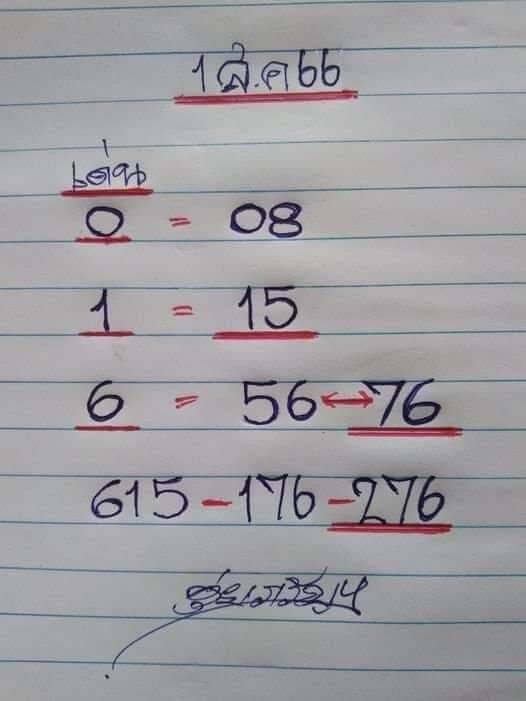 1 ส.ค 66
เด่น
0 = 08
1 = 15
6 = 56 ↔ 76
615 - 176 - 276